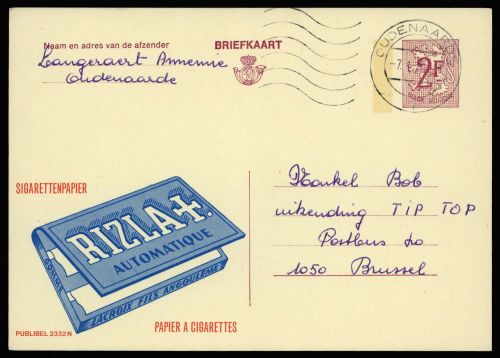 Naam en adres van de afzender
BRIEFKAART
Langeraert Annemie
Oudenaarde
OUDENAARDE
-7.
2F
BELGIE-BELGIQUE
SIGARETTENPAPIER
RIZLA+.
AUTOMATIQUE
GOMME
LACROIX FILS ANGOULEME
PUBLIBEL 2332N
PAPIER A CIGARETTES
Bob
uitzending TIP TOP
Postbus
1050 Brussel